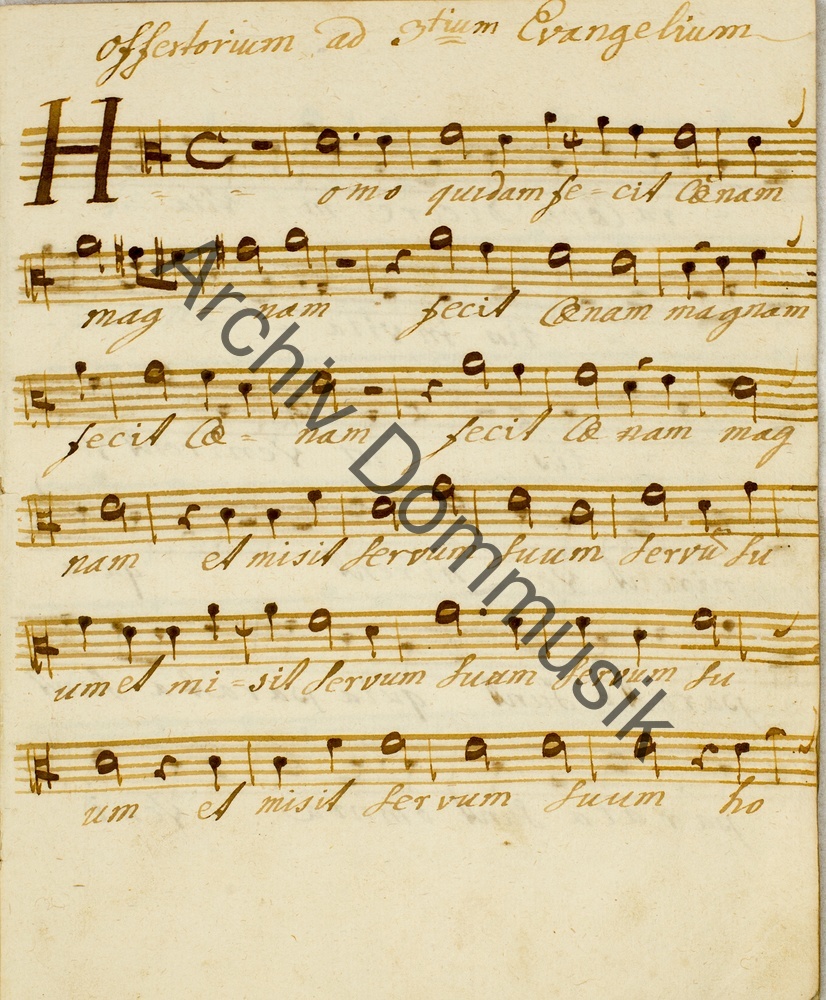 Offertorium ad 3tium Evangelium
H = = omo quidam fe - cit Cœnam
mag - nam fecit Cœnam magnam
fecit Cœ = nam fecit Cœ nam mag
nam et misit servum suum servū su
um et mi = sit servum suum servum su
um et misit servum suum ho
Archiv Dommusik